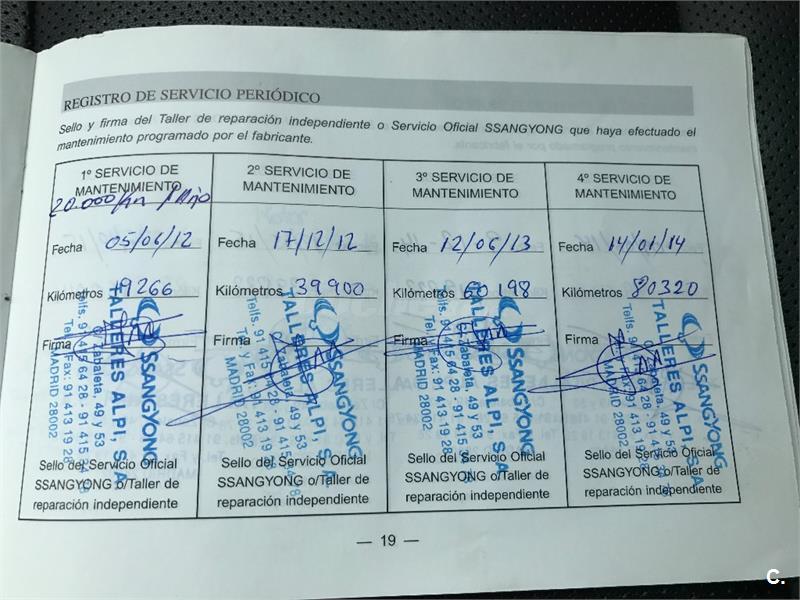 REGISTRO DE SERVICIO PERIÓDICO
Sello y firma del Taller de reparación independiente o Servicio Oficial SSANGYONG que haya efectuado el
mantenimiento programado por el fabricante.
1º SERVICIO DE
MANTENIMIENTO
20.000 km / 1 Año
Fecha 05/06/12
Kilómetros 19266
Firma
SSANGYONG
TALLERES ALPI, S.A.
C/ Zabaleta, 49 y 53
Telfs. 91 415 64 28 - 91 415
Tel. y Fax: 91 413 19 28
MADRID 28002
Sello del Servicio Oficial
SSANGYONG o/Taller de
reparación independiente
2º SERVICIO DE
MANTENIMIENTO
Fecha 17/12/12
Kilómetros 39900
Firma
SSANGYONG
TALLERES ALPI, S.A.
Zabaleta, 49 y 53
Telfs. 91 415 64 28 - 91 415
Tel. y Fax: 91 413 19 28
MADRID 28002
Sello del Servicio Oficial
SSANGYONG o/Taller de
reparación independiente
3º SERVICIO DE
MANTENIMIENTO
Fecha 12/06/13
Kilómetros 60198
Firma
SSANGYONG
TALLERES ALPI, S.A.
Zabaleta, 49 y 53
Telfs. 91 415 64 28 - 91 415
Fax: 91 413 19 28
MADRID 28002
Sello del Servicio Oficial
SSANGYONG o/Taller de
reparación independiente
4º SERVICIO DE
MANTENIMIENTO
Fecha 14/01/14
Kilómetros 80320
Firma
SSANGYONG
TALLERES ALPI, S.A.
Zabaleta, 49 y 53
Telfs. 91 415 64 28 - 91 415
Fax: 91 413 19 28
MADRID 28002
Sello del Servicio Oficial
SSANGYONG o/Taller de
reparación independiente
— 19 —
C.